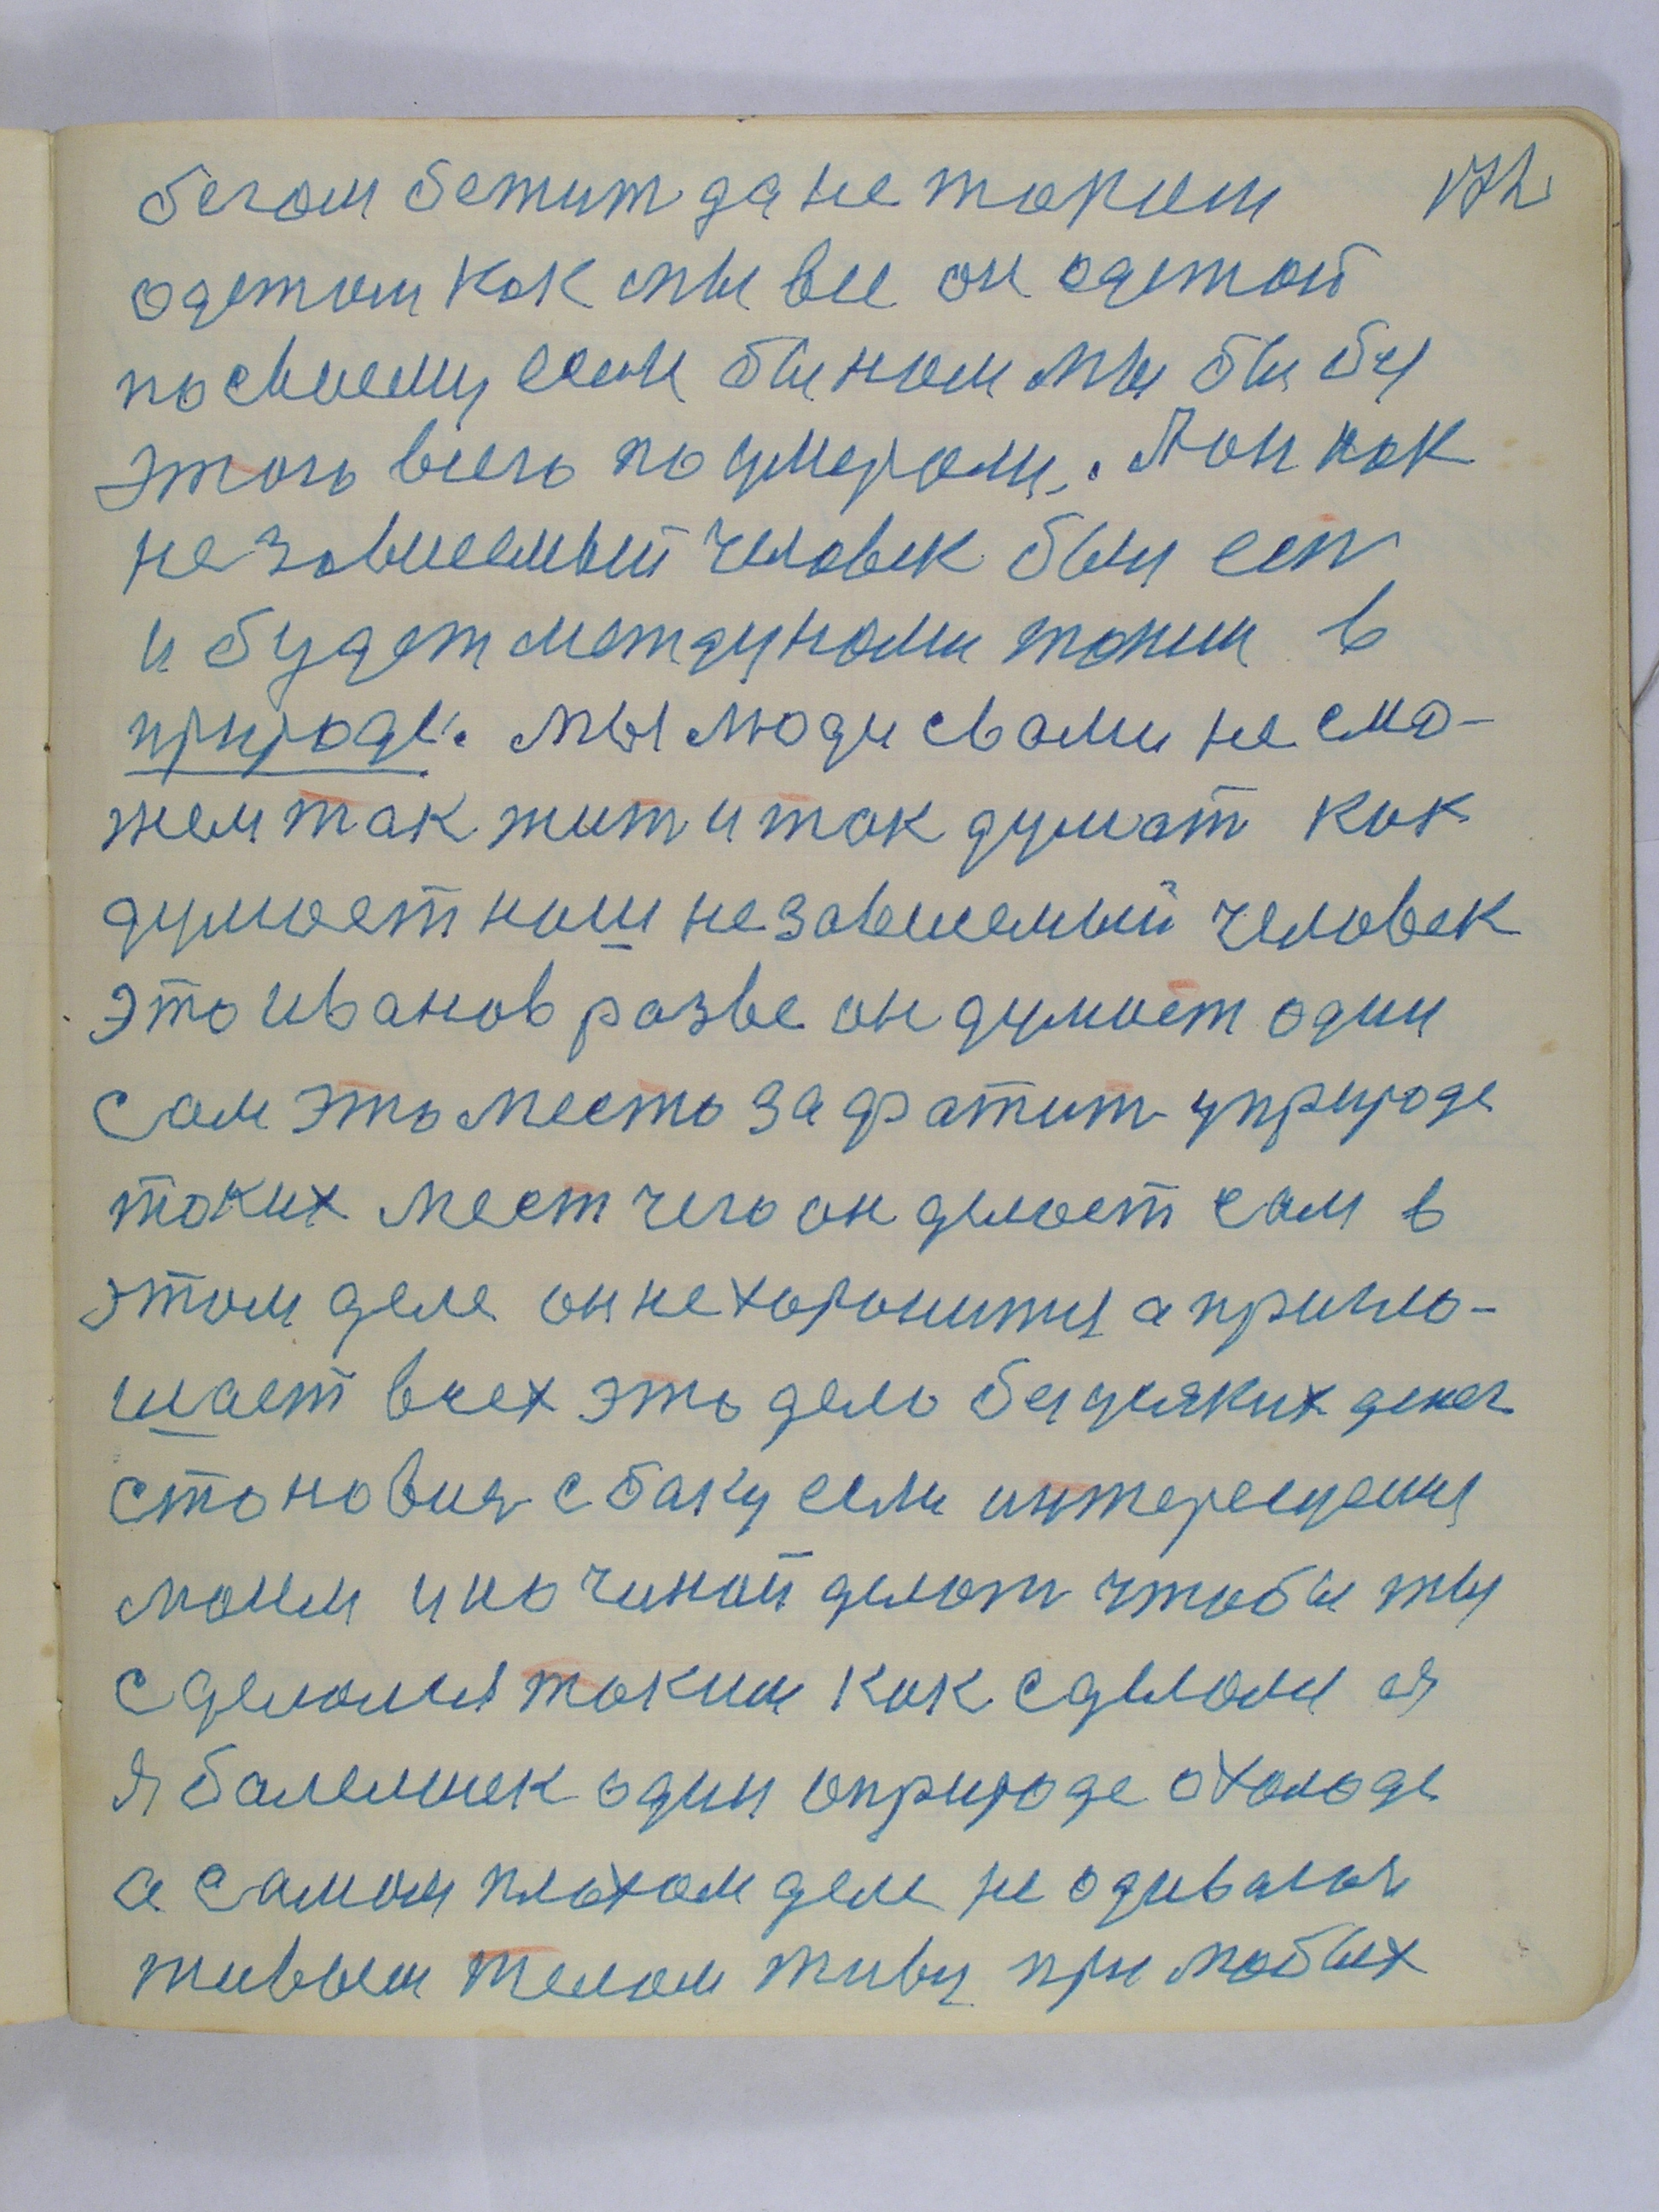 бегом бежит да не таким 172
одетым как мы все он одетой
по своему если бы ном мы бы бы
этого всего поумерали. А он как
независемый человек был есть
и будет между нами таким в
природе. мы люди с вами не смо-
жем так жит и так думат как
думает наш независемый человек
это иванов разве он думает один
сам это место зафатит у природе
таких мест чего он делает сам в
этом деле он не хоронится а пригло-
шает всех это дело без усяких денег
становися с баку если интересуеш
моим и начинай делат чтобы ты
сделался таким как сделали ся
я балелшек один у природе о холоде
а самом плохом деле не одивался
живым телом живу при любых